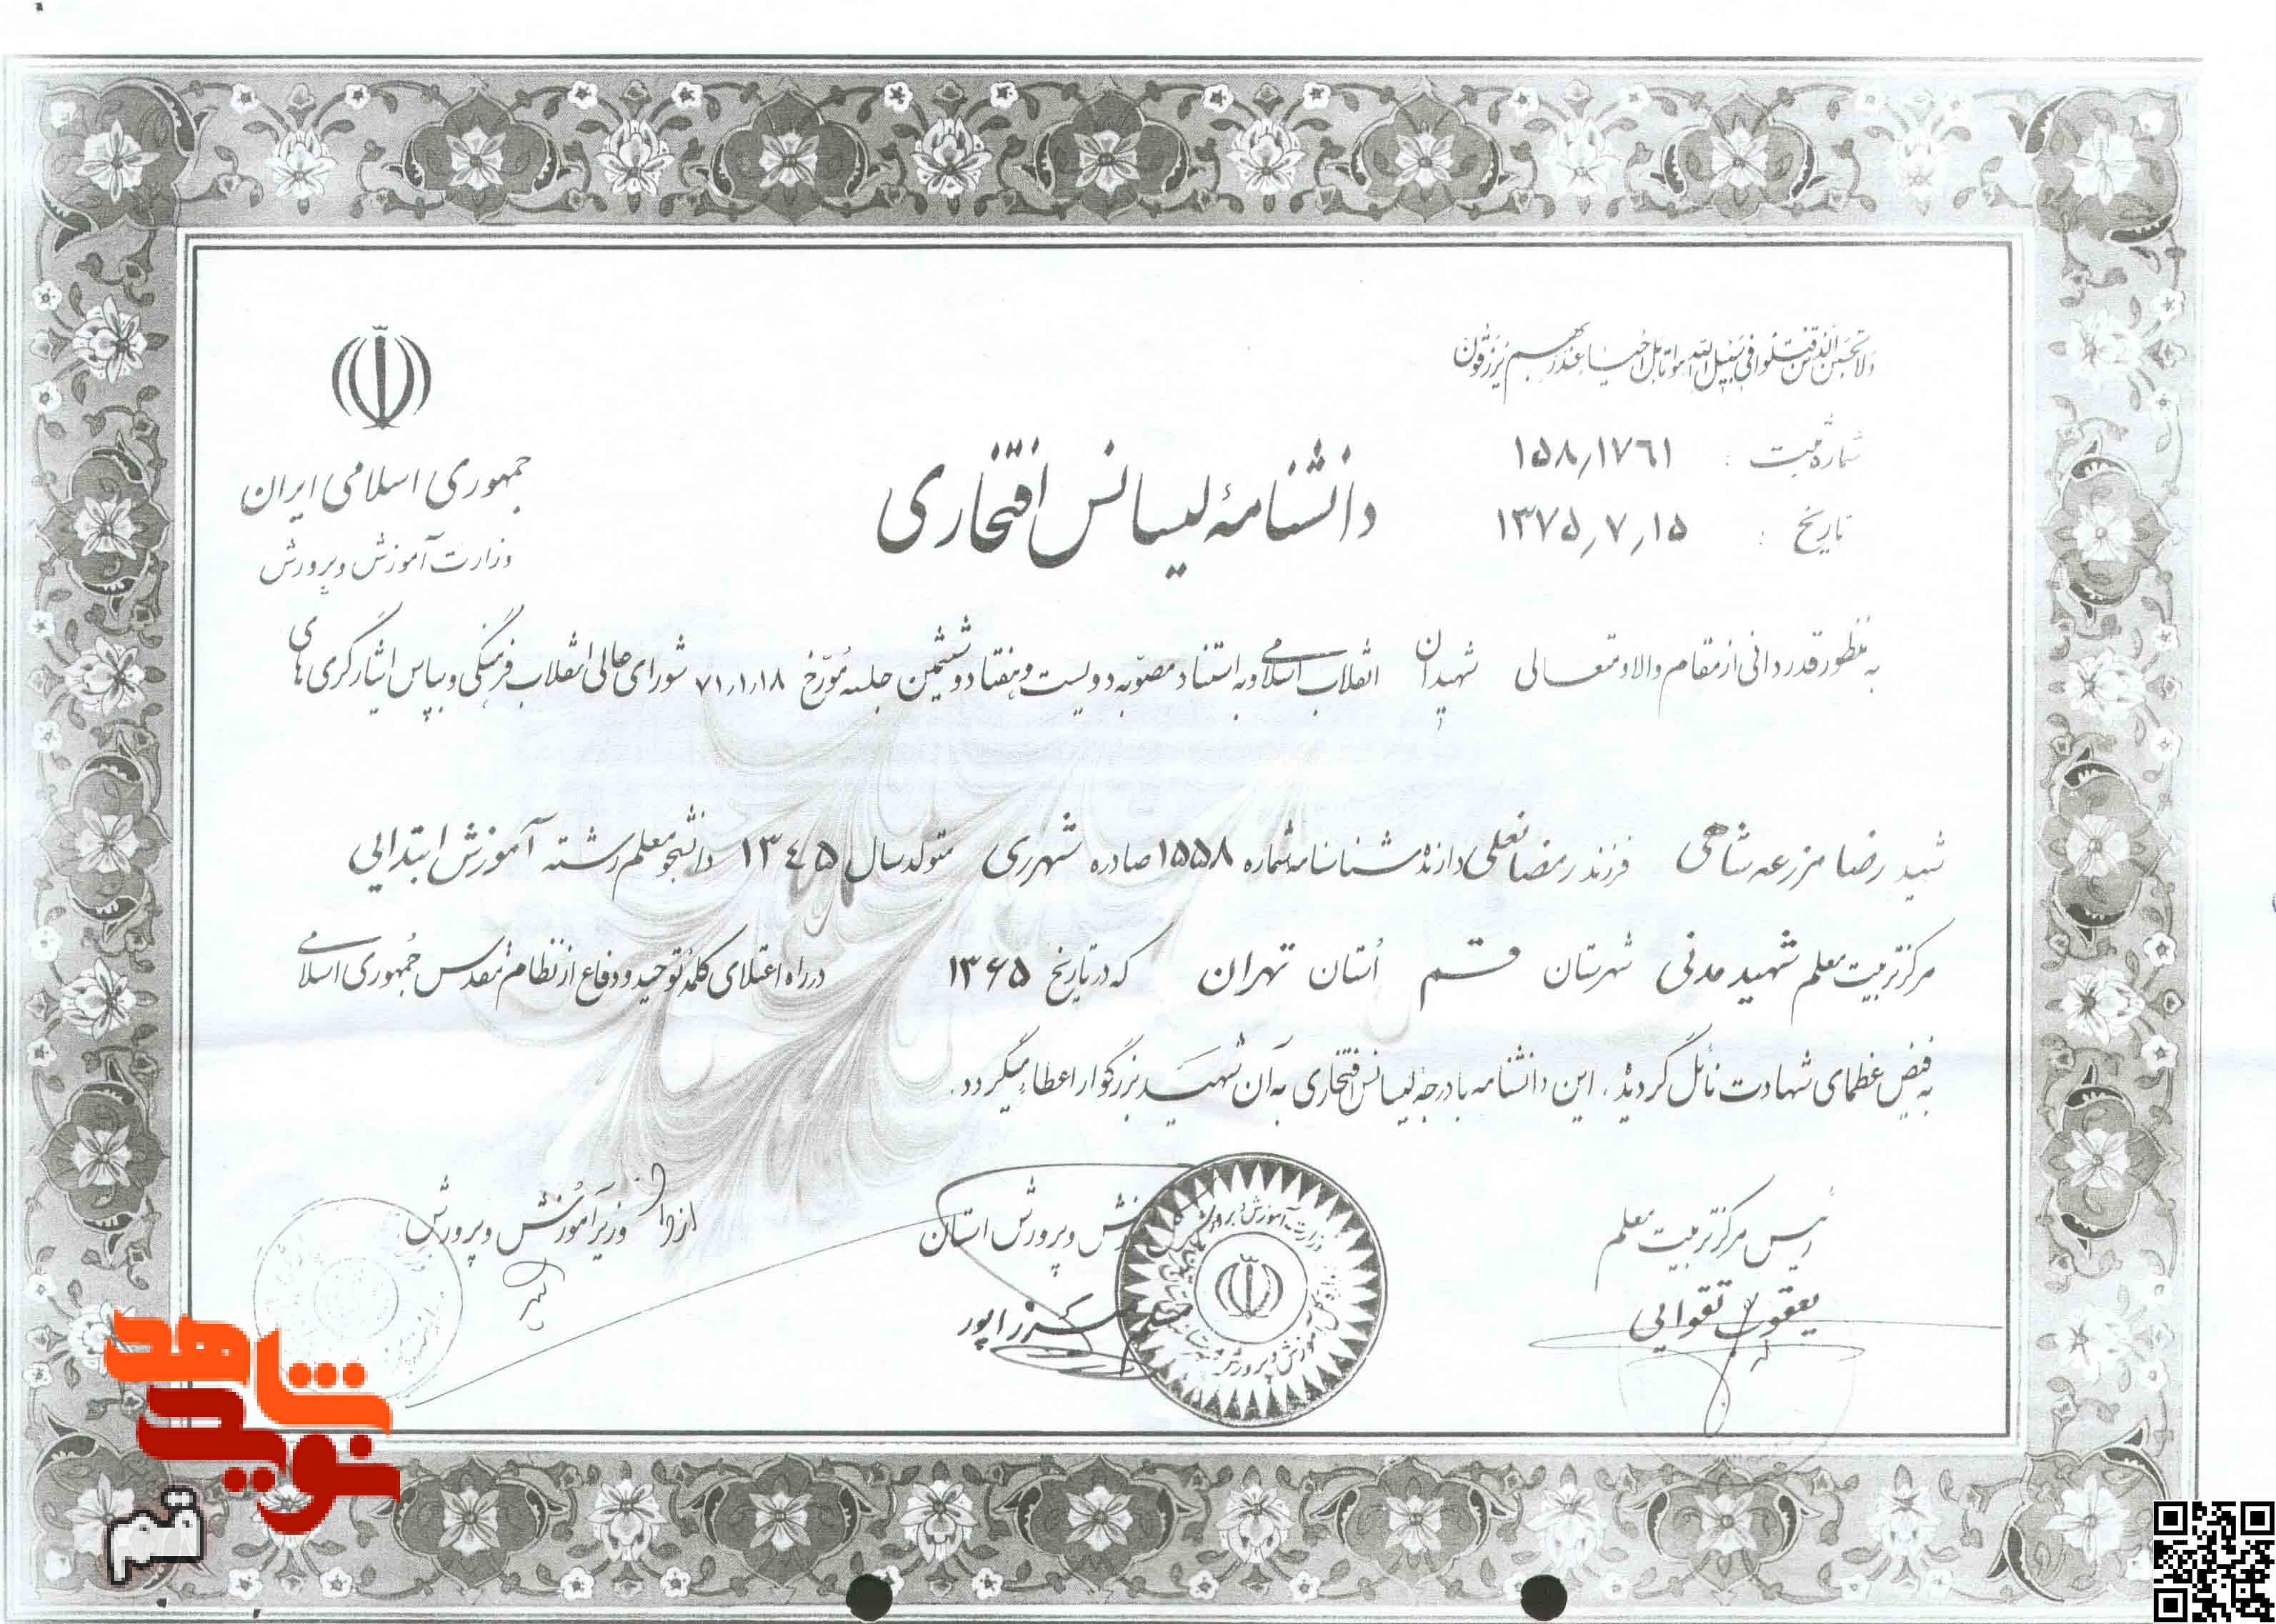 ولا تحسبن الذین قتلوا فی سبیل الله امواتا بل احیاء عند ربهم یرزقون
شماره ثبت : ۱۵۸٫۱۷۶۱
تاریخ : ۱۳۷۵٫۷٫۱۵
دانشنامهٔ لیسانس افتخاری
جمهوری اسلامی ایران
وزارت آموزش و پرورش
به منظور قدردانی از مقام والا و متعالی شهیدان انقلاب اسلامی و به استناد مصوّبه دویست و هفتاد و ششمین جلسه مورّخ ۷۱٫۱٫۱۸ شورای عالی انقلاب فرهنگی و بپاس ایثارگری های
شهید رضا مزرعه شاهی فرزند رمضانعلی دارنده شناسنامه شماره ۱۵۵۸ صادره شهرری متولد سال ۱۳۴۵ دانشجو معلم رشته آموزش ابتدایی
مرکز تربیت معلم شهید مدنی شهرستان قم اُستان تهران که در تاریخ ۱۳۶۵ در راه اعتلای کلمهٔ توحید و دفاع از نظام مقدس جُمهوری اسلامی
به فیض عظمای شهادت نائل گردید، این دانشنامه با درجه لیسانس افتخاری به آن شهید بزرگوار اعطاء میگردد.
رئیس مرکز تربیت معلم
یعقوب تقوایی
آموزش و پرورش استان
وزیر آموزش و پرورش
وزارت آموزش و پرورش
شاهد
نوید
قم